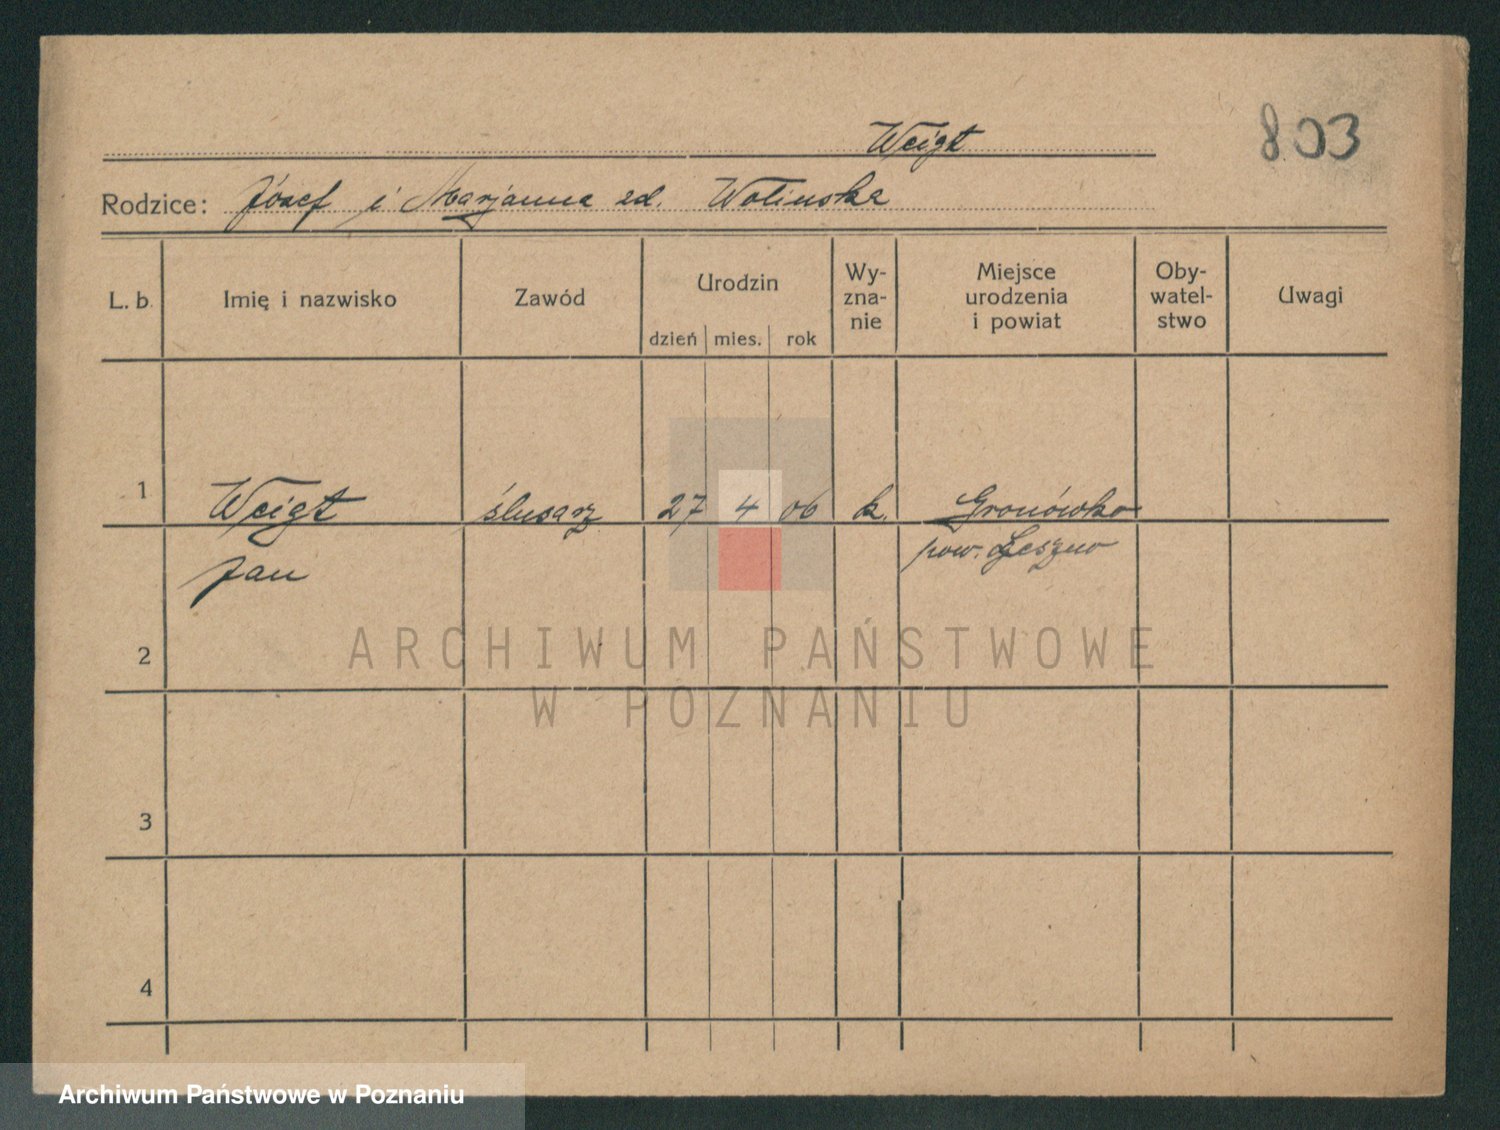 Weigt
803
Rodzice: Józef i Marjanna zd. Wolinska
L. b. Imię i nazwisko Zawód Urodzin dzień mies. rok Wy-zna-nie Miejsce urodzenia i powiat Oby-watel-stwo Uwagi
1 Weigt ślusarz 27 4 06 k. Gronówko
Jan pow. Leszno
2
3
4
ARCHIWUM PAŃSTWOWE
W POZNANIU
Archiwum Państwowe w Poznaniu